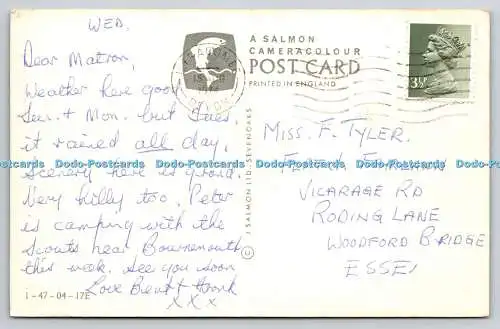 WED.
Dear Matron,
Weather here good
Sun. + Mon. but Tues.
it rained all day.
Scenery here is grand.
Very hilly too. Peter
is camping with the
Scouts near Bournemouth
this week. See you soon
Love + Frank
x x x
1-47-04-17E
A SALMON
CAMERACOLOUR
POST CARD
PRINTED IN ENGLAND
© J SALMON LTD., SEVENOAKS
DEVON
3½P
MISS. F. TYLER.
VICARAGE RD
RODING LANE
WOODFORD BRIDGE
ESSEX
Dodo-Postcards Dodo-Postcards Dodo-Postcards Dodo-Postcards Dodo-Postcards